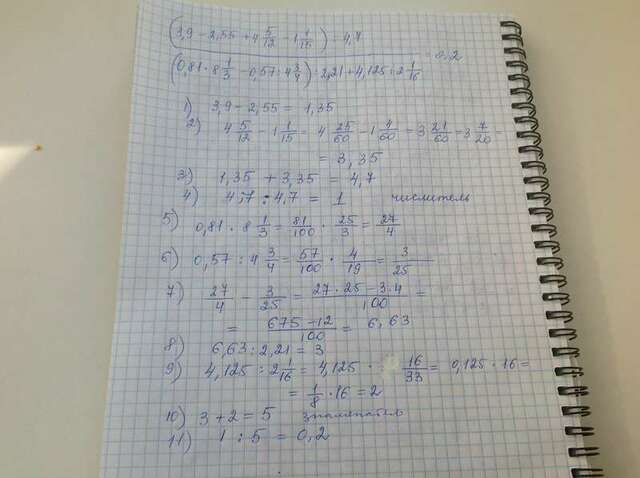 (3,9 - 2,55 + 4 5/12 - 1 1/15) : 4,7
(0,81 · 8 1/3 - 0,57 : 4 3/4) : 2,21 + 4,125 : 2 1/16 = 0,2
1) 3,9 - 2,55 = 1,35
2) 4 5/12 - 1 1/15 = 4 25/60 - 1 4/60 = 3 21/60 = 3 7/20 =
= 3,35
3) 1,35 + 3,35 = 4,7
4) 4,7 : 4,7 = 1 числитель
5) 0,81 · 8 1/3 = 81/100 · 25/3 = 27/4
6) 0,57 : 4 3/4 = 57/100 · 4/19 = 3/25
7) 27/4 - 3/25 = (27 · 25 - 3 · 4)/100 =
= (675 - 12)/100 = 6,63
8) 6,63 : 2,21 = 3
9) 4,125 : 2 1/16 = 4,125 · 16/33 = 0,125 · 16 =
= 1/8 · 16 = 2
10) 3 + 2 = 5 знаменатель
11) 1 : 5 = 0,2